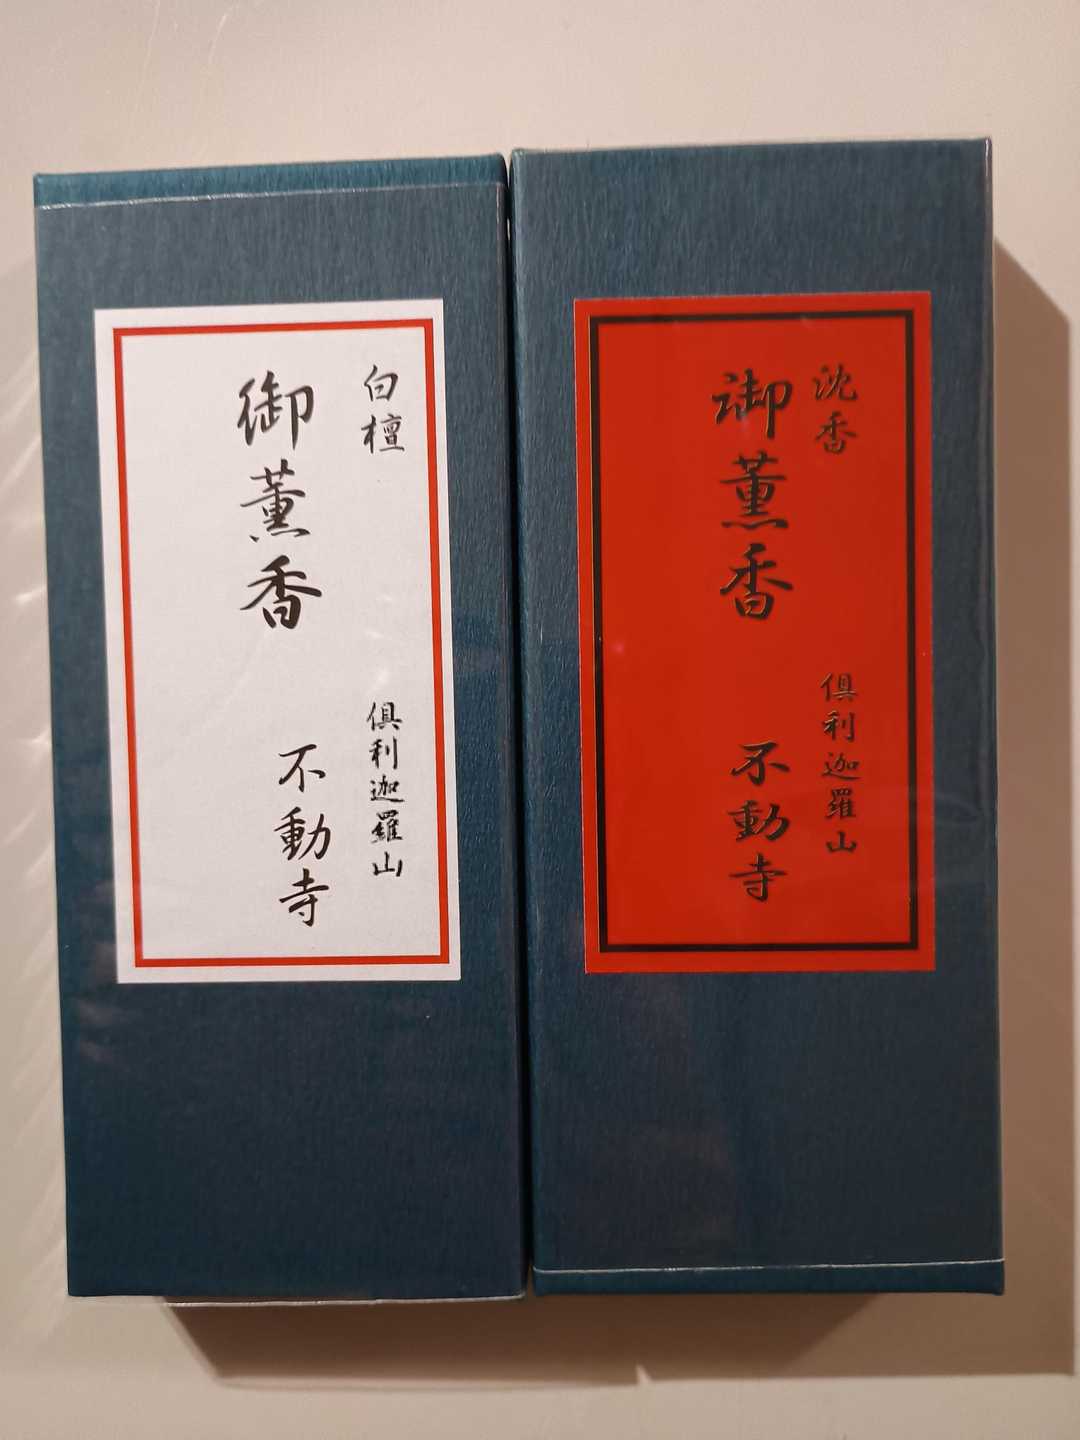 白檀
御薫香
倶利迦羅山
不動寺
沈香
御薫香
倶利迦羅山
不動寺